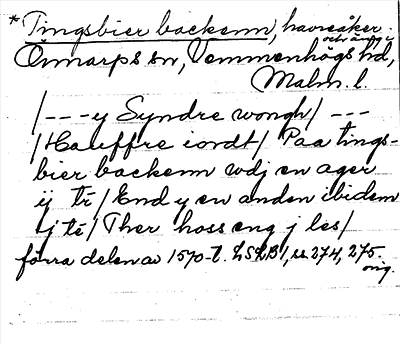 *Tingsbier backenn, havreåker
och äng i
Önnarps sn, Vemmenhögs hd,
Malm. l.
/---y Syndre wongh/ ---
/Hauffre iordt/ Paa tings-
bier backenn wdj en ager
ij tr/ End y en anden ibidem
j tr/ Ther hoss eng j les/
förra delen av 1570-t. LSLB 1, ss. 274, 275.
orig.